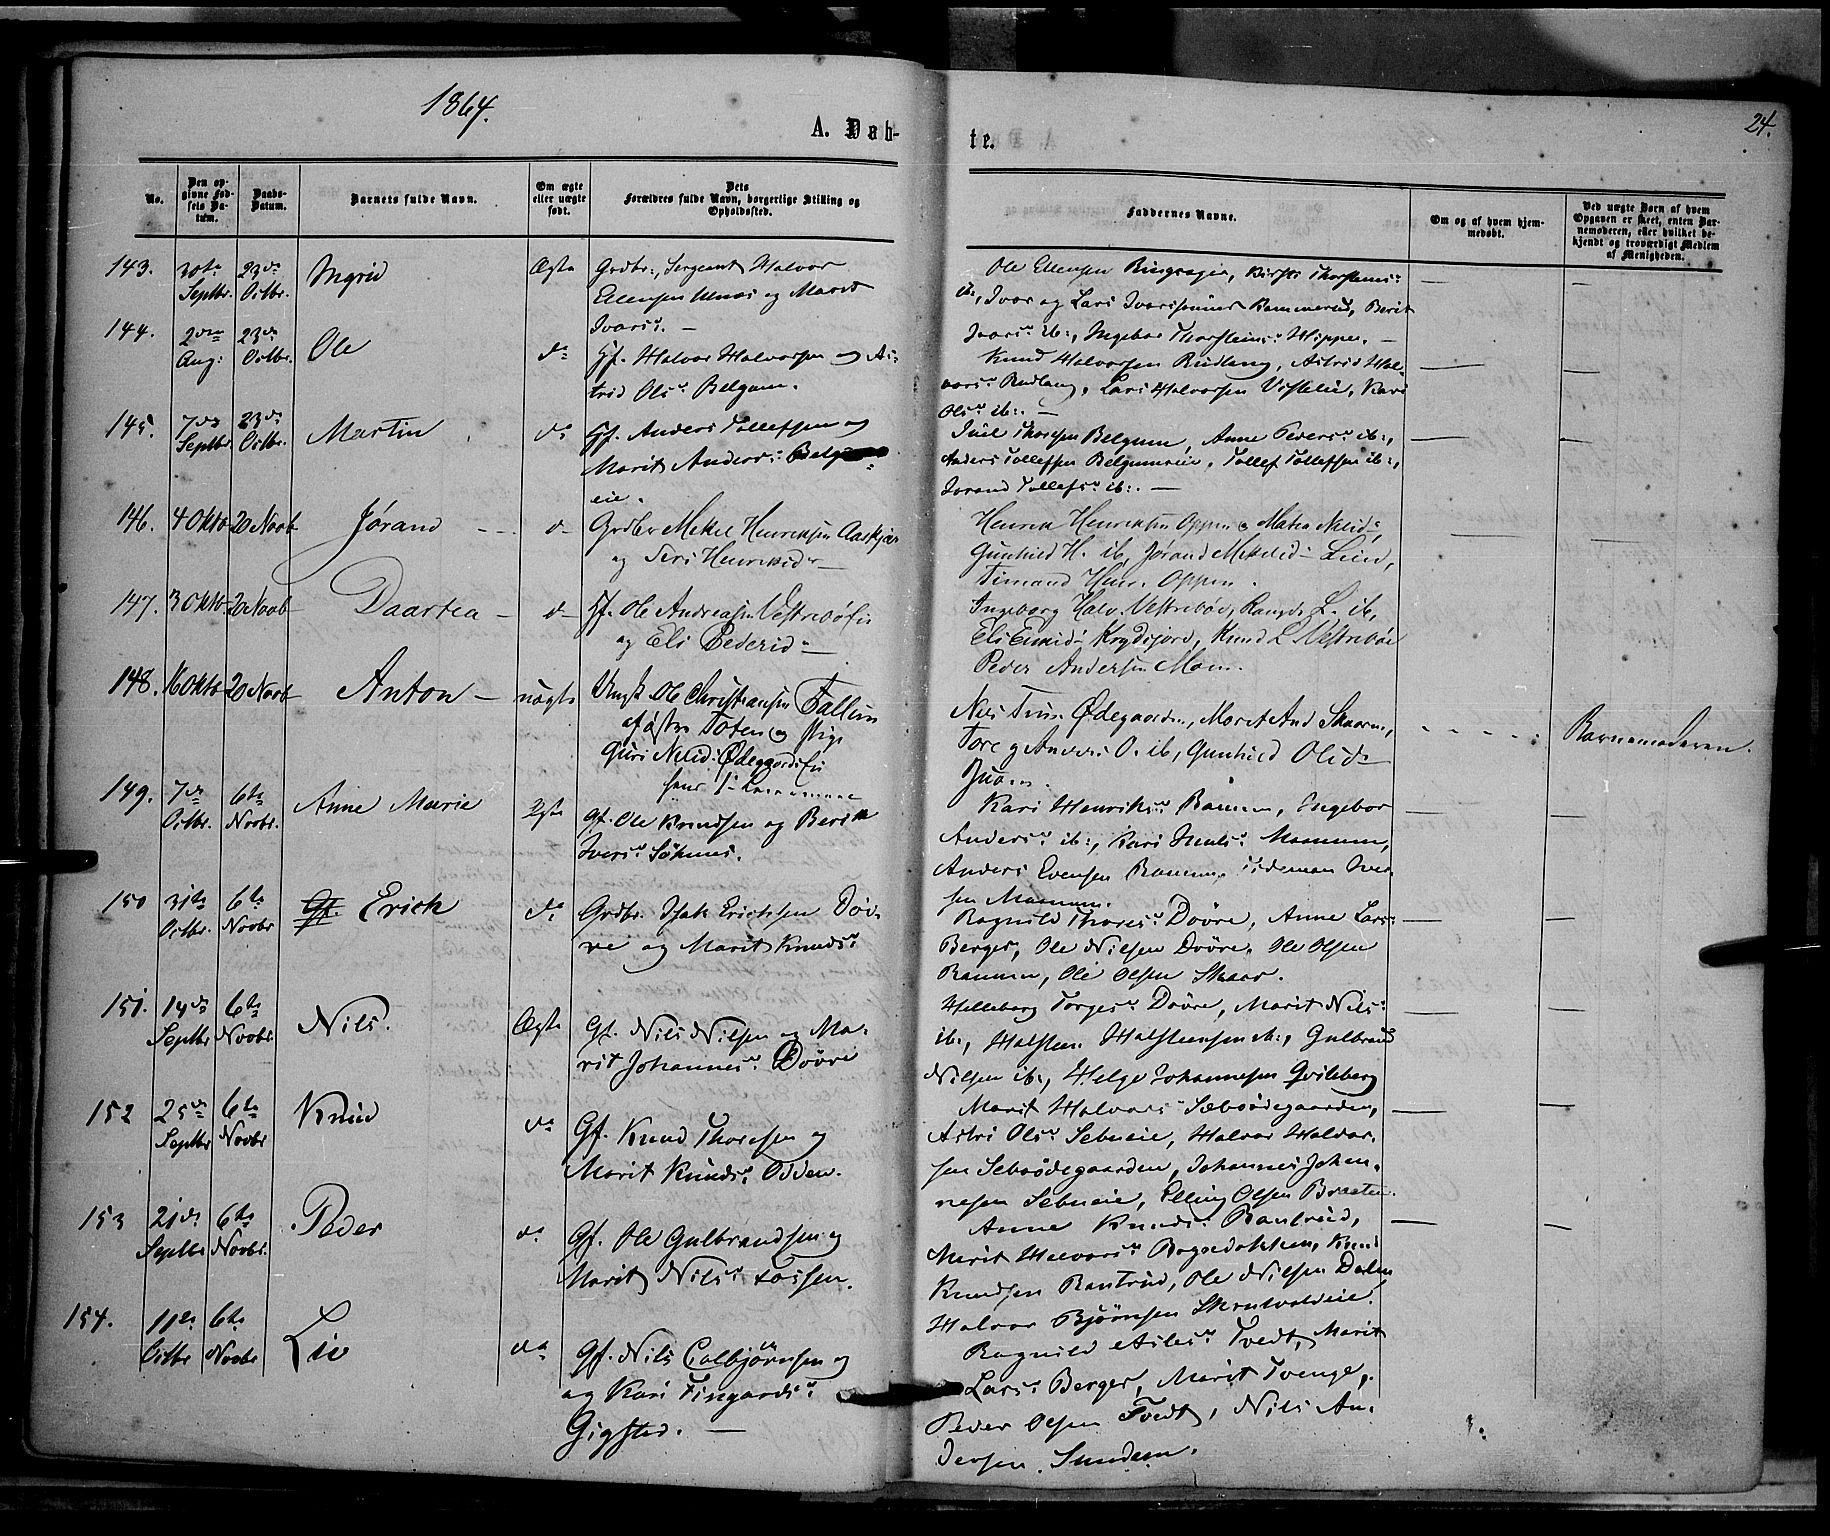 1864.
24.
A. Døb-
te.
No.
Den op-
givne Fød-
sels Da-
tum.
Daabs-
Datum.
Barnets fulde Navn.
Om ægte
eller uægte
født.
Dets
Forældres fulde Navn, borgerlige Stilling og
Opholdssted.
Faddernes Navne.
Om og af hvem hjem-
medøbt.
Ved uægte Børn af hvem
Opgaven er skeet, enten Bar-
nemoderen, eller hvilket be-
kjendt og troværdigt Medlem
af Menigheden.
143. 30te Septbr. 23de Octbr. Ingrid Ægte
Grdbr., Sergeant Halvor
Ellensen og Marit
Ivars: —
Ole Ellensen Ringsager, Thorsteins:
ib:, Ivar og Lars Ivarssønner Rammerud, Berit
Ivars: ib:, Ingebor Thorsteins: Hippe. —
144. 2den Aug: 23de Octbr. Ole do
Gf. Halvor Halvorsen og As-
trid Ols: Belgum.
Knud Halvorsen Rudlang, Astrid Hal-
vors: Rudlang, Lars Halvorsen, Kari
Ols: ib:. —
145. 7de Septbr. 23de Octbr. Martin do
Hf. Anders Tollefsen og
Marit Anders: Belgum
eie.
Juul Thoresen Belgum, Anne Peders: ib:,
Anders Tollefsen Belgumseie, Tollef Tollefsen ib:,
Jorand Tollefs: ib:. —
146. 4 Okto 20 Novb Jørand d-
Grdbr Mekel Henriksen Aaskjær
og Siri Henriksd:
Henrik Henriksen Oppen, Matea Nilsd:
Gunhild H. ib, Jørand Mekelsd: Lein,
Timand Henr. Oppen.
147. 3 Okto 20 Novb Daartea d-
Hf. Ole Andreasen Vestrebø
og Eli Pedersd:
Ingeborg Halv. Vestrebø, Rangdi L. ib,
Eli Knud L. Vestrebø
Peder Andersen Moen.
148. 16 Okto 20 Novb Anton uægte
Ungk. Ole Christiansen Fallun
af østre Toten og Pige
Guri Nilsd: Ødegaards
Nils Ødegaarden, Marit And Skaaren,
Tore og Anders O. ib, Gunhild Olsd:
Barnemoderen.
149. 7de Octbr. 6te Novbr. Anne Marie Ægte
Gf. Ole Knudsen og Berit
Ivers:
Kari Henriks: Ingebor
Anders: ib:, Kari Juuls: Moenum,
Anders Evensen, Tideman Iver-
sen Moenum.
150 31te Octbr. 6te Novbr. Gf. Erich do
Grdbr. Isak Erichsen Døv-
re og Marit Knuds:
Ragnild Thores: Døvre, Anne Lars:
Berger, Ole Nilsen Døvre, Ole Olsen
Ole Olsen Skaar.
151. 14de Septbr 6te Novbr. Nils. Ægte
Gf. Nils Nilsen og Ma-
rit Johannes: Døvre
Helleborg Torges: Døvre, Marit Nils:
ib:, Halsten Halsteensen ib:, Gulbrand
Nilsen ib:, Helge Johannesen Qvileberg
152 25de Septbr 6te Novbr Knud do
Gf. Knud Thoresen og
Marit Knuds: Odden.
Marit Halvors: Sebuødegaarden,
Astri Ols: Sebueie, Halvor Halvor-
sen Sebuødegaarden, Johannes Johan-
nesen Sebueie, Elling Olsen Braaten.
153 21de Septbr 6te Novbr. Peder do
Gf. Ole Gulbrandsen og
Marit Nils: Fossen.
Anne Knuds: Rantrud,
Marit Halvors: Bagsedokken, Knud
Knudsen Rantrud, Ole Nilsen Dalen
Halvor Bjørnsen Skrutvoldeie.
154. 11te Octbr 6te Novbr Liv do
Gf. Nils Colbjørnsen og
og Kari Fingards:
Gigstad. —
Ragnild Asles: Tvedt, Marit
Lars: Berger, Marit Tvenge,
Peder Olsen Tvedt, Nils An-
dersen Sundem.